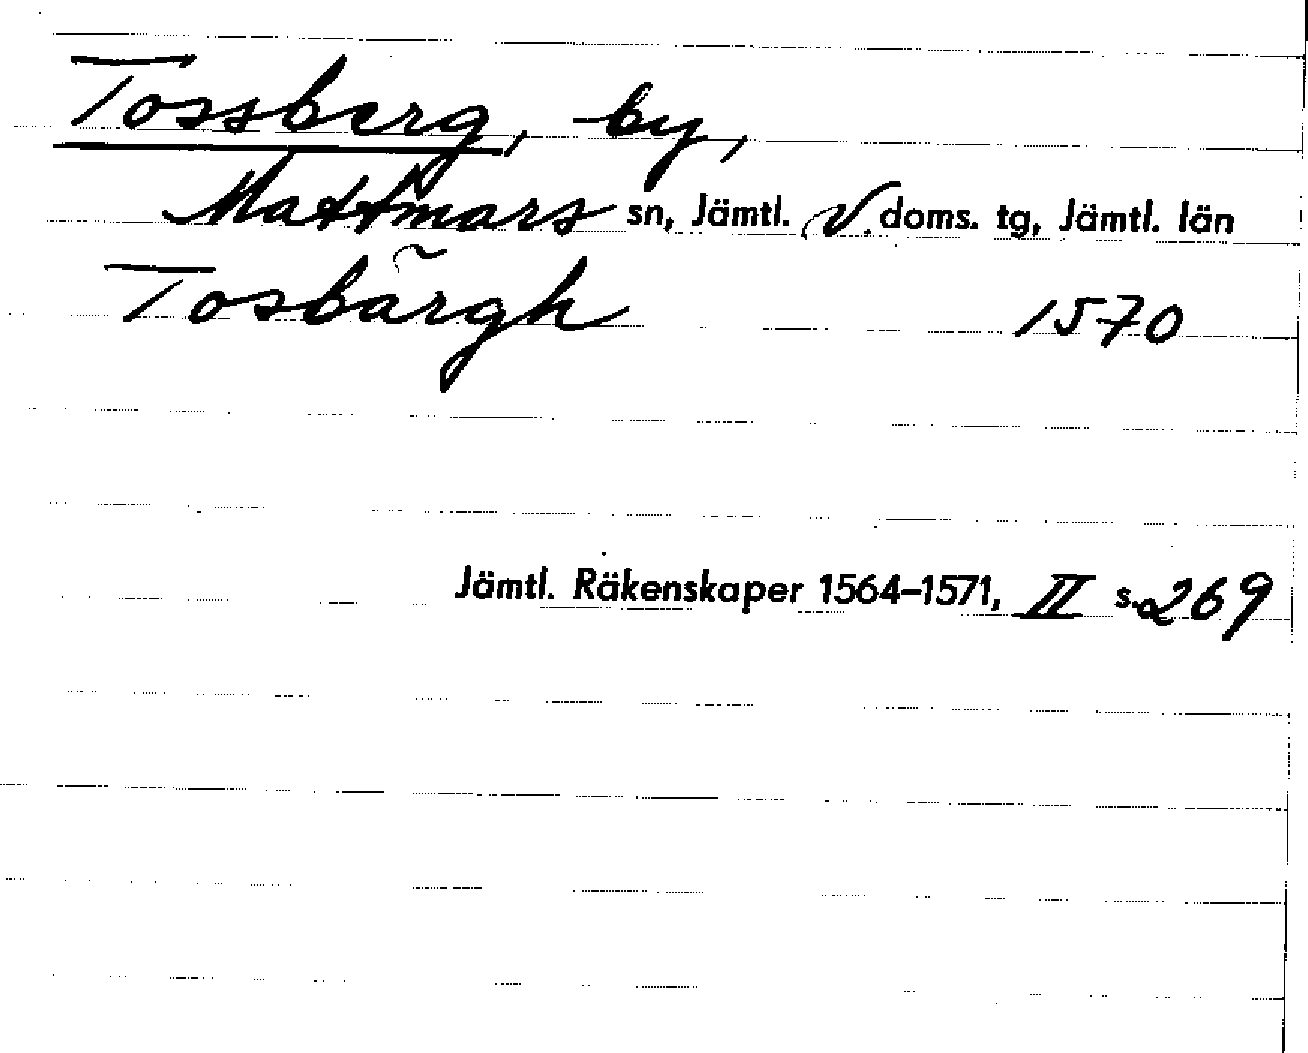 Tossberg, by,
Mattmars sn, Jämtl. V. doms. tg, Jämtl. län
Tosbãrgh 1570
Jämtl. Räkenskaper 1564–1571, II s. 269